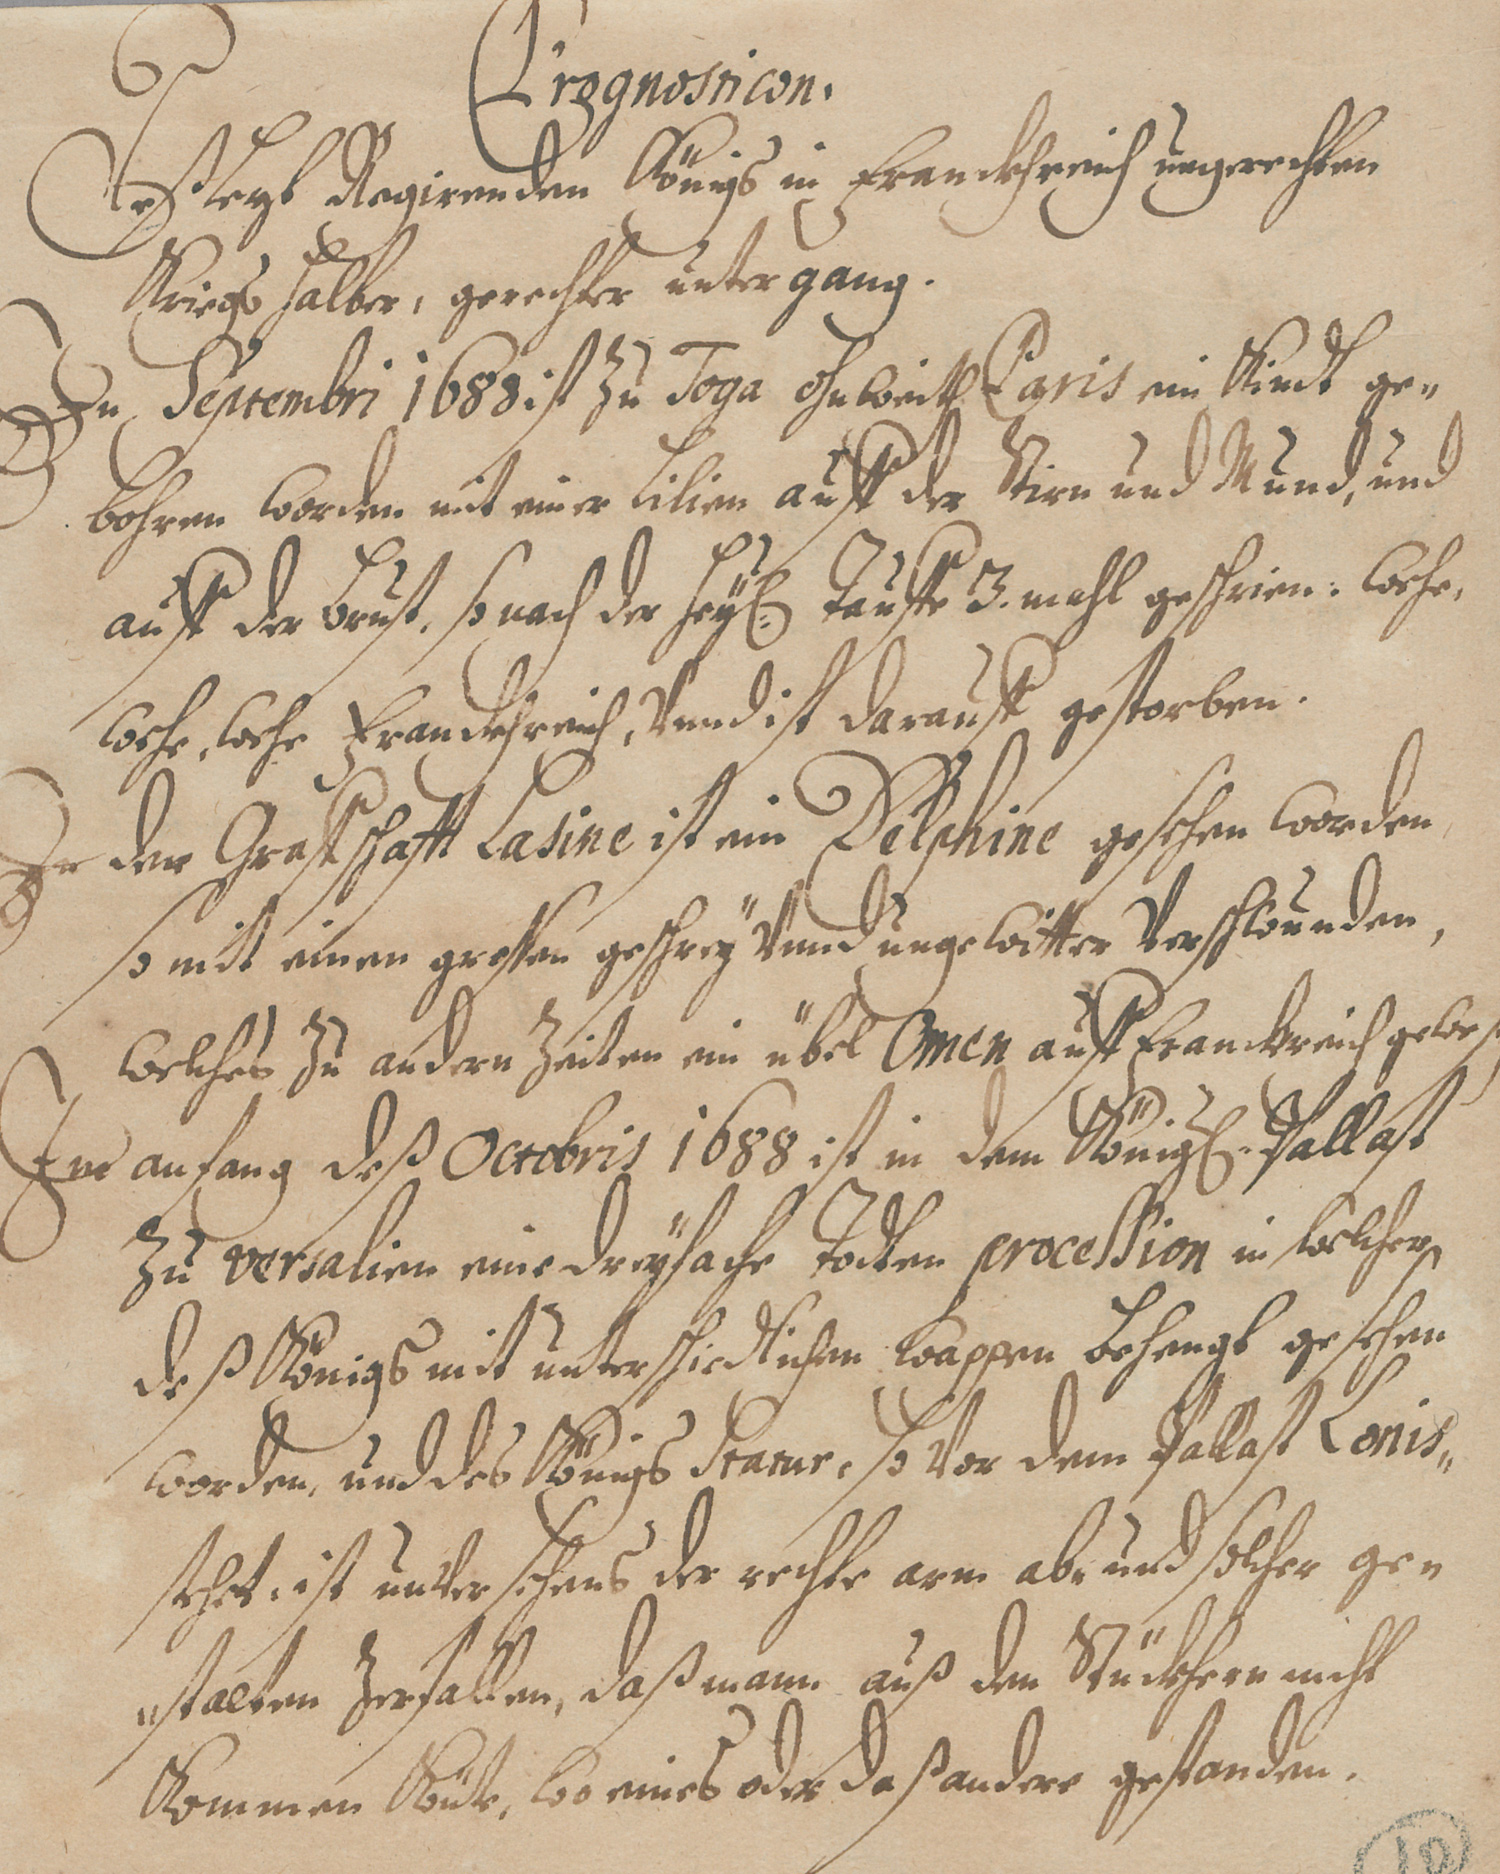 Prognosticon.
Deß iezt Regirenden Königs in Franckhreich ungerechten
Kriegs halber, gerechter untergang.
In Septembri 1688 ist zu Toga ohnweith Paris ein Kindt ge=
bohren worden mit einer Lilien auff der Stirn und Mund, und
auff der brust, so nach der heyl: Tauffe 3. mahl geschrien: Wehe,
wehe, wehe Franckhreich, Vnnd ist darauff gestorben.
In der Graffschafft Lasine ist ein Delphine gesehen worden,
so mit einen grossen geschrey Vnnd ungewitter Verschwunden,
welches zu andern Zeiten ein übel Omen auff Franckreich gewest
Im anfang deß Octobris 1688 ist in dem Königl. Pallast
zu Versalien eine dreyfache Todten procession in welcher
deß Königs mit unterschiedlichen wappen behengt gesehen
worden, und des Königs Statur, so Vor dem Pallast Lonis=
stehet, ist unversehens der rechte arm ab, und solcher ge=
=stalten Zerfallen, daß mann auß den Stückhern nicht
Kommen Könte, wo eines oder daß andere gestanden.